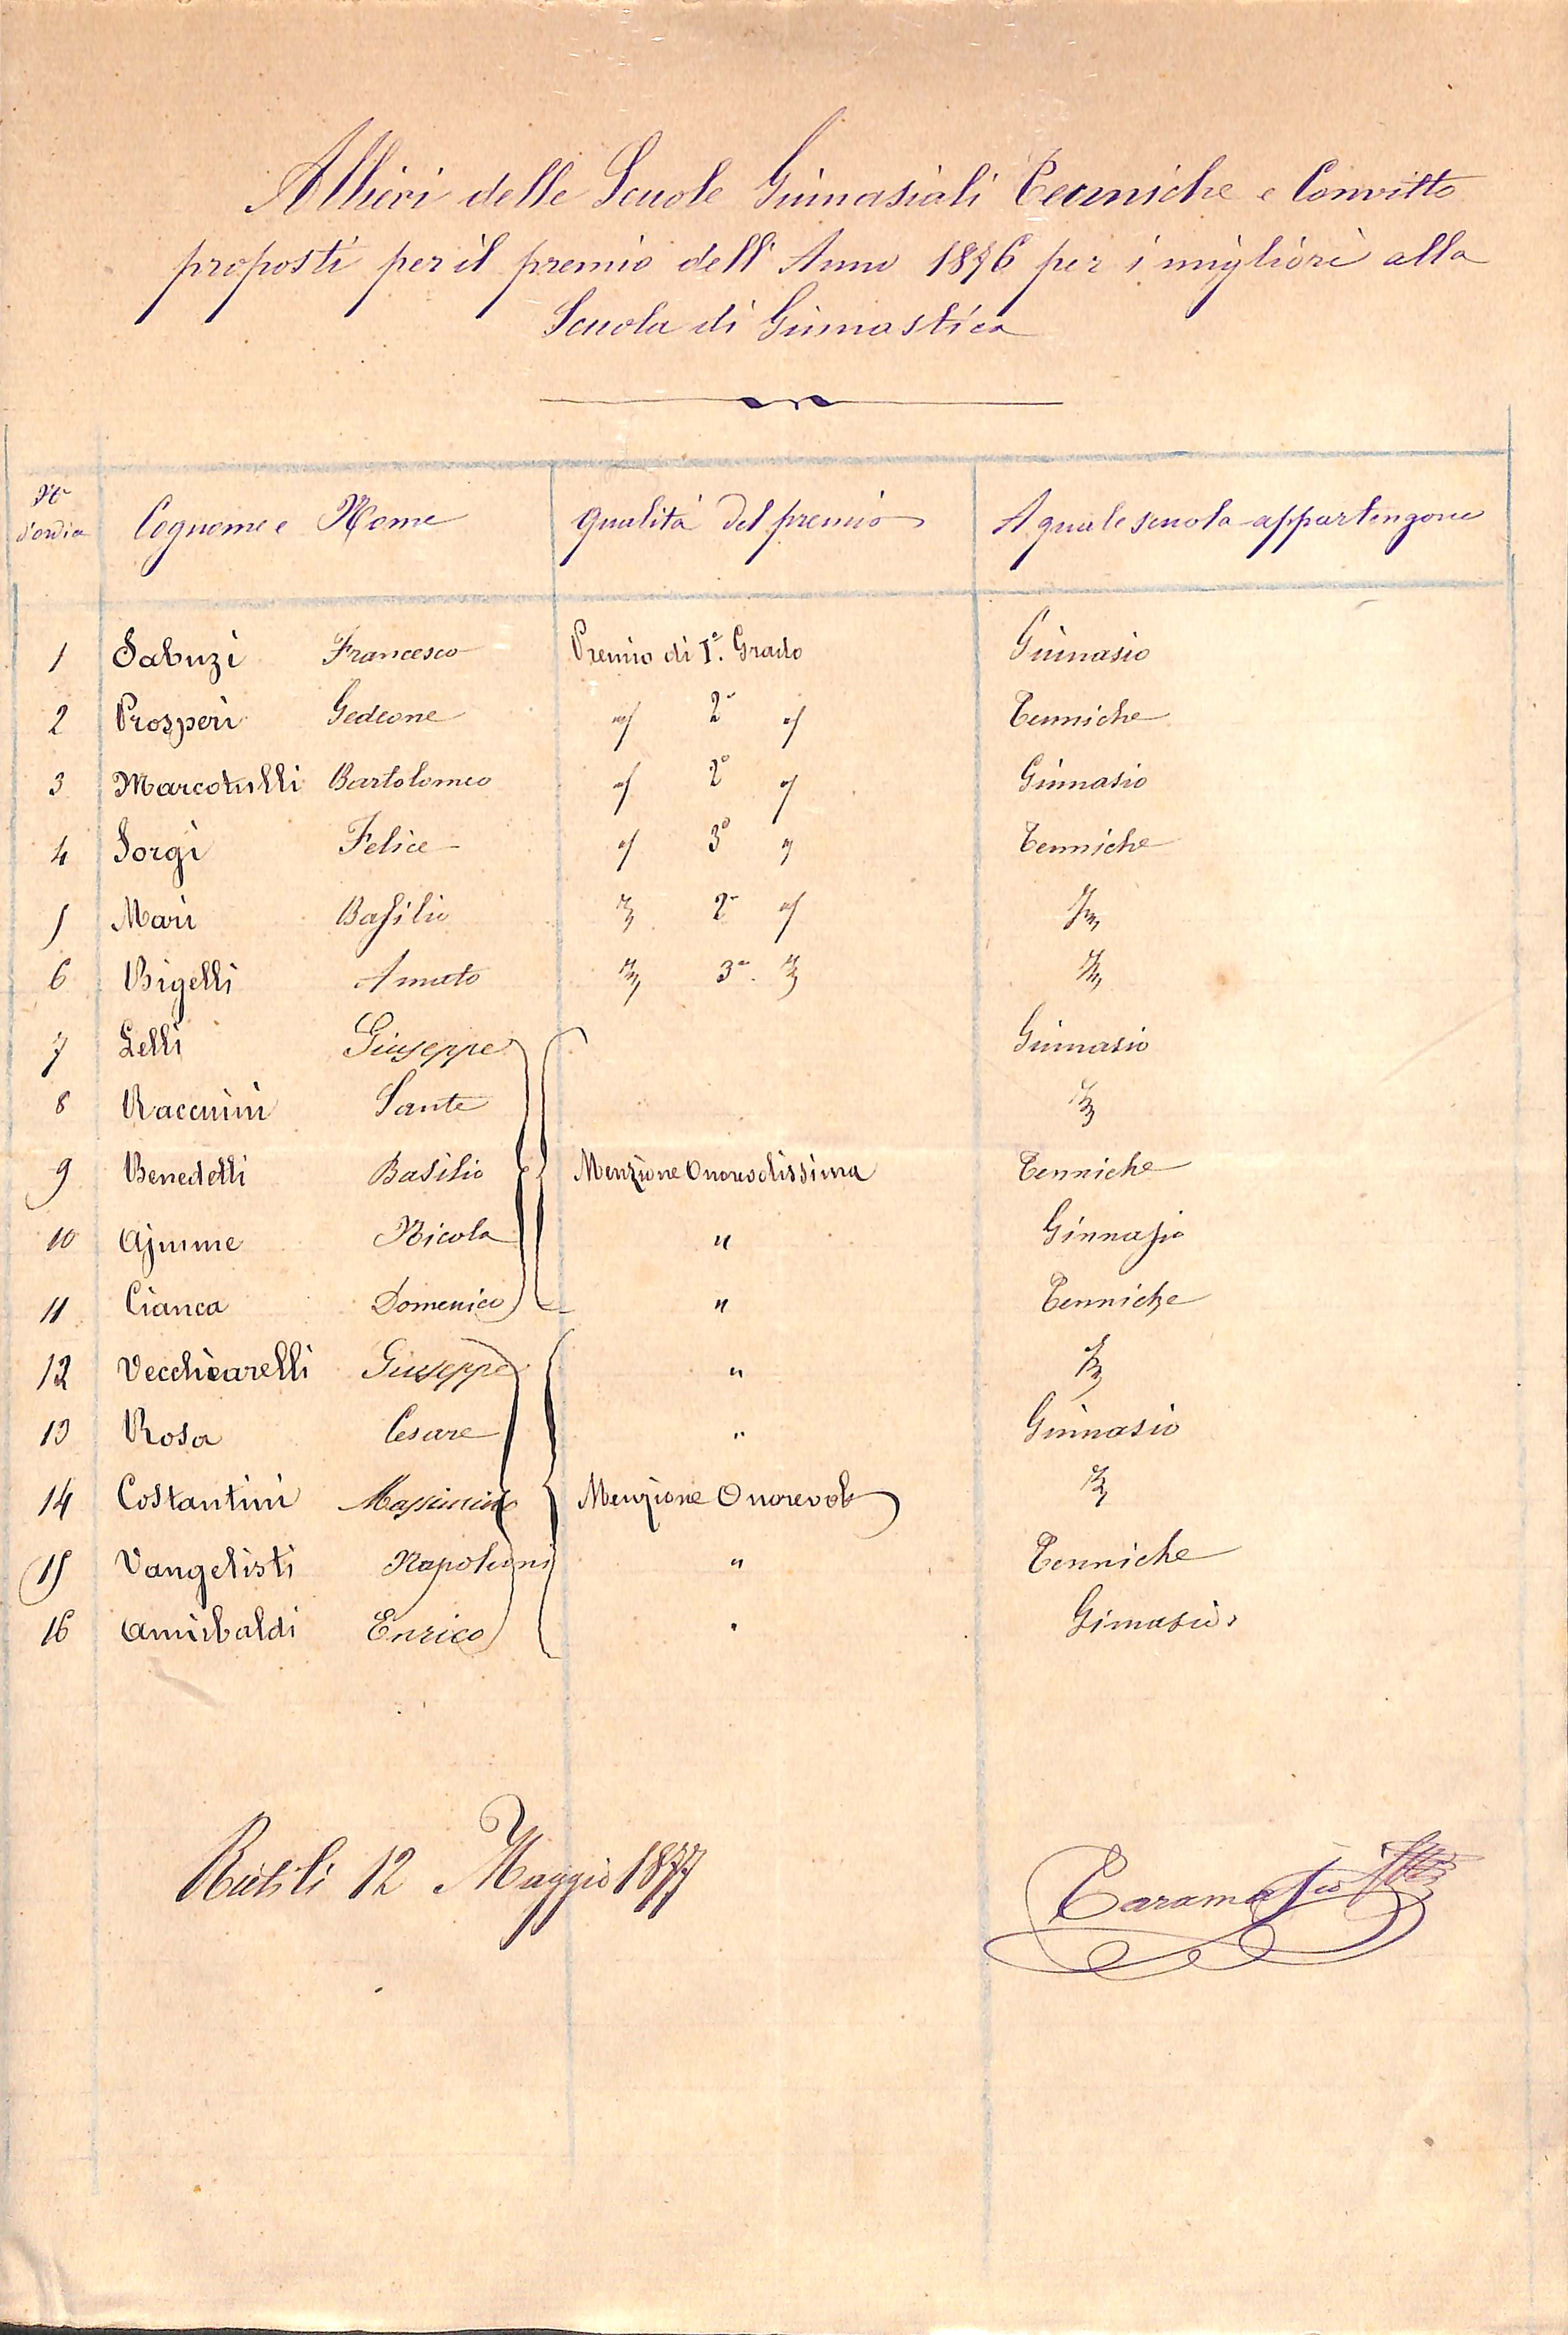 Allievi delle Scuole Ginnasiali Tecniche e Convitto
proposti per il premio dell' Anno 1876 per i migliori alla
Scuola di Ginnastica
N° d'ordin Cognome e Nome Qualità del premio A quale scuola appartengono
1 Sabuzi Francesco Premio di I°. Grado Ginnasio
2 Prosperi Gedeone " 2° " Tecniche
3 Marcotulli Bartolomeo " 2° " Ginnasio
4 Sorgi Felice " 3° " Tecniche
5 Mari Basilio " 2° " "
6 Bigelli Amato " 3° " "
7 Lelli Giuseppe Ginnasio
8 Racciuini Sante "
9 Benedetti Basilio Menzione Onorevolissima Tecniche
10 Ajmme Nicola " Ginnasio
11 Cianca Domenico " Tecniche
12 Vecchiarelli Giuseppe " "
13 Rosa Cesare " Ginnasio
14 Costantini Massimino Menzione Onorevole "
15 Vangelisti Napoleoni " Tecniche
16 Annibaldi Enrico " Ginnasio
12 Maggio 1877